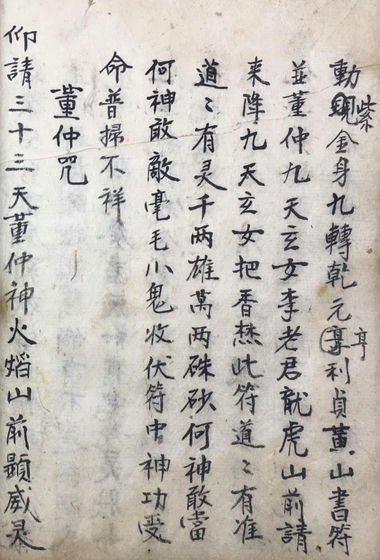 動現紫金身九轉乾元享亨利貞黃山書符
並董仲九天玄女李老君龍虎山前請
来降九天玄女把香焚此符道〻有准
道〻有灵千两雄萬两硃砂何神敢當
何神敢敵毫毛小鬼收伏符中神功受
命普掃不祥
董仲咒
仰請三十三天董仲神火熖山前顕威灵